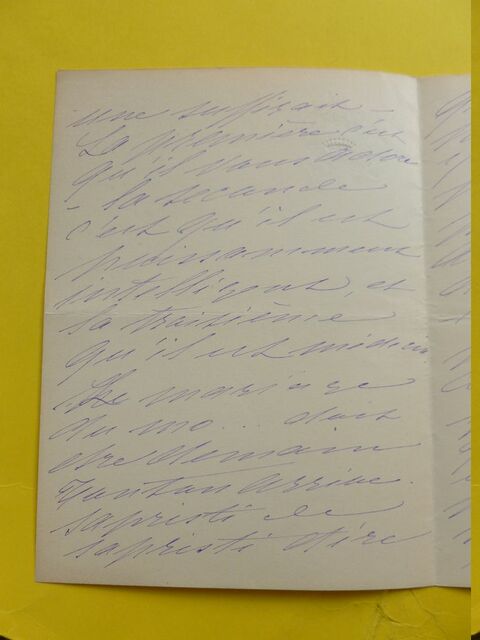 une suffisait –
La première c'est
qu'il vous adore
– la seconde
c'est qu'il est
puissamment
intelligent, et
la troisième
qu'il est médecin
Le mariage
du mo... doit
être demain
arrive.
sapristi de
sapristi dire